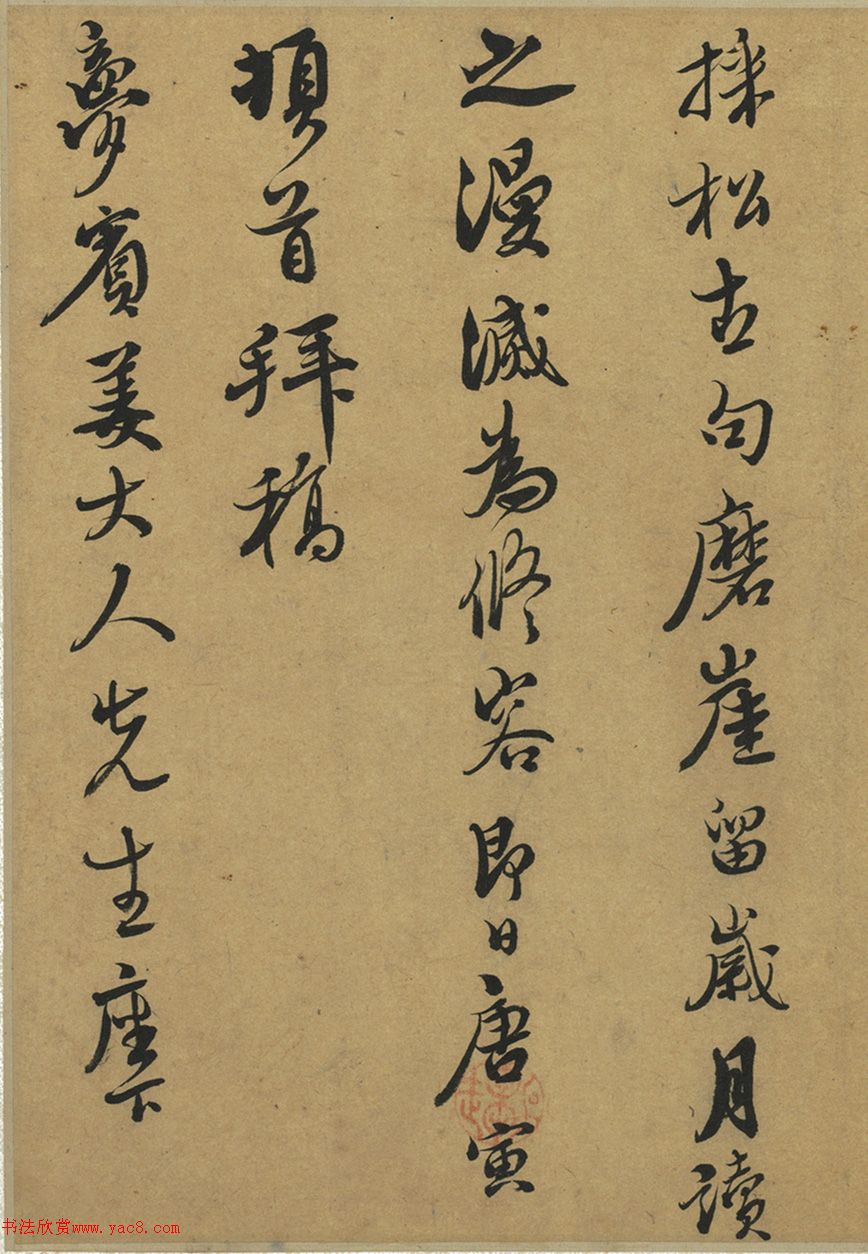 採松古句磨崖留歲月讀
之漫滅為修容即日唐寅
頓首拜稿
夢賓姜大人先生座下
书法欣赏www.yac8.com